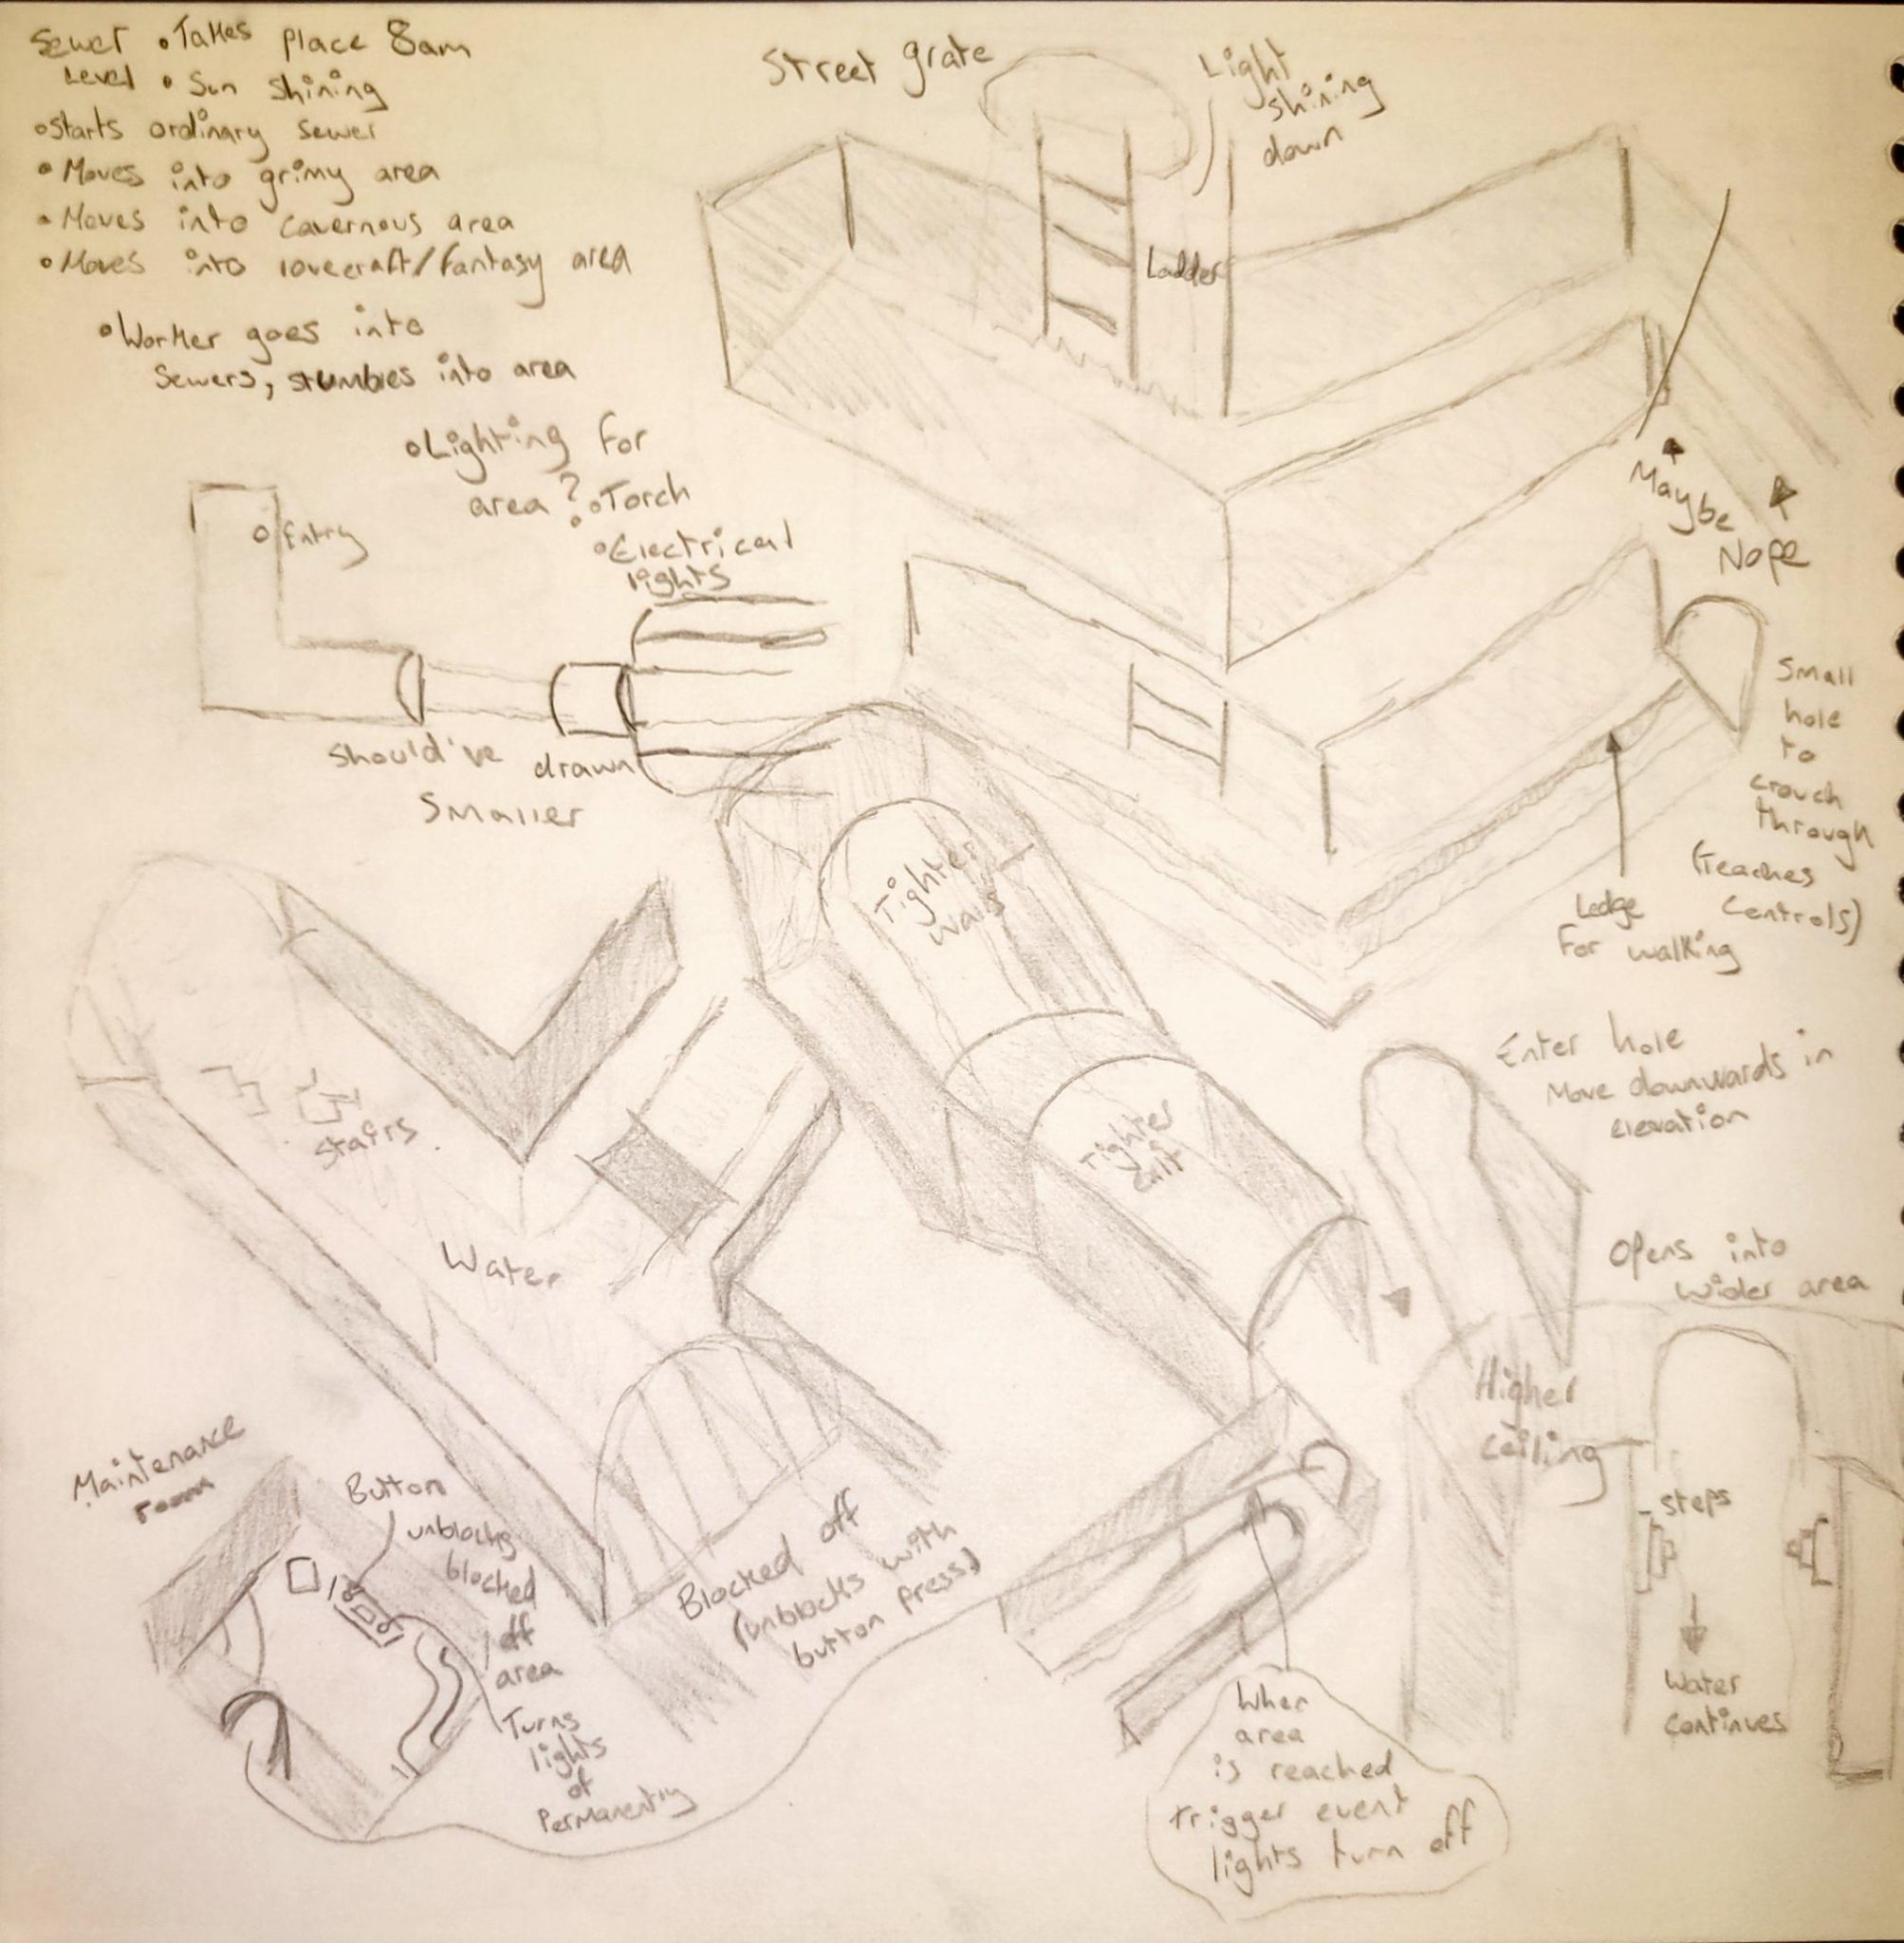 Sewer • Takes place 8am
Level • Sun shining
• Starts ordinary sewer
• Moves into grimy area
• Moves into cavernous area
• Moves into lovecraft/fantasy area
• Worker goes into
sewers, stumbles into area
• Lighting for
area?
• Torch
• Electrical
lights
• Entry
Should've drawn
smaller
Street grate
Light
shining
down
Ladder
Maybe
Nope
Small
hole
to
crouch
through
(teaches
controls)
Ledge
for walking
Tighter
walls
Tighter
exit
Enter hole
Move downwards in
elevation
Opens into
wider area
Higher
ceiling
Steps
Water
continues
Stairs
Water
Maintenance
room
Button
unblocks
blocked
off
area
Turns
lights
of
Permanently
Blocked off
(unblocks with
button press)
When
area
is reached
trigger event
lights turn off